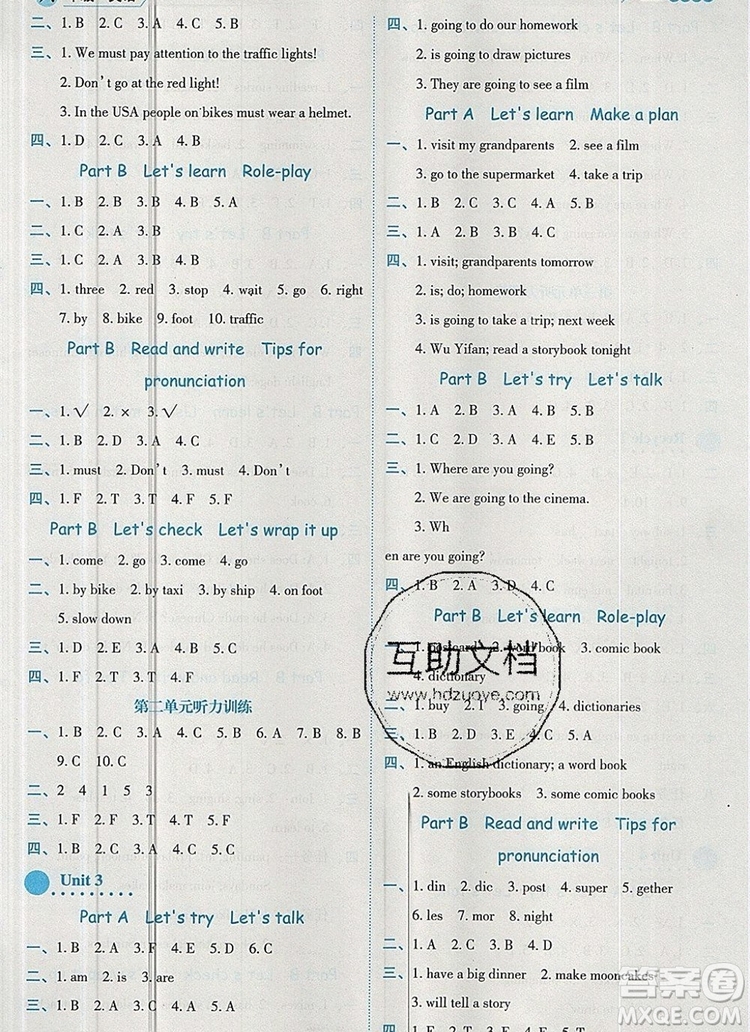 二、1. B  2. C  3. A  4. B
三、1. We must pay attention to the traffic lights!
2. Don't go at the red light!
3. In the USA people on bikes must wear a helmet.
四、1. D  2. C  3. A  4. B
Part B  Let's learn  Role-play
一、1. B  2. B  3. B  4. B  5. A
二、1. C  2. A  3. B
三、1. C  2. A  3. B  4. B
四、1. three  2. red  3. stop  4. wait  5. go  6. right
7. by  8. bike  9. foot  10. traffic
Part B  Read and write  Tips for
pronunciation
一、1. √  2. ×  3. √
二、1. B  2. D  3. A  4. C
三、1. must  2. Don't  3. must  4. Don't
四、1. F  2. T  3. T  4. F  5. F
Part B  Let's check  Let's wrap it up
一、1. come  2. go  3. come  4. go
二、1. by bike  2. by taxi  3. by ship  4. on foot
5. slow down
三、1. D  2. E  3. A  4. B  5. C
四、1. B  2. A  3. B
第二单元听力训练
一、1. B  2. A  3. C  4. C  5. B  6. A  7. B  8. B
9. C  10. C
二、2  4  1  5  3
三、1. F  2. F  3. T  4. T  5. F
四、1. B  2. C  3. A  4. C  5. A
Unit 3
Part A  Let's try  Let's talk
一、1. B  2. A  3. F  4. E  5. D  6. C
二、1. am  2. is  3. are
三、1. B  2. A  3. B  4. B  5. A
四、1. going to do our homework
2. is going to draw pictures
3. They are going to see a film
Part A  Let's learn  Make a plan
一、1. visit my grandparents  2. see a film
3. go to the supermarket  4. take a trip
二、1. B  2. A  3. C  4. A  5. B
三、1. B  2. A  3. A  4. B  5. B
四、1. visit; grandparents tomorrow
2. is; do; homework
3. is going to take a trip; next week
4. Wu Yifan; read a storybook tonight
Part B  Let's try  Let's talk
一、1. A  2. B  3. B  4. A  5. B
二、1. C  2. D  3. A  4. E  5. B
三、1. Where are you going?
2. We are going to the cinema.
3. Wh
en are you going?
四、1. B  2. A  3. D  4. C
Part B  Let's learn  Role-play
一、1. postcard  2. word book  3. comic book
4. dictionary
二、1. buy  2. I  3. going  4. dictionaries
三、1. B  2. D  3. E  4. C  5. A
四、1. an English dictionary; a word book
2. some storybooks  3. some comic books
Part B  Read and write  Tips for
pronunciation
一、1. din  2. dic  3. post  4. super  5. gether
6. les  7. mor  8. night
二、1. A  2. D  3. B  4. C
三、1. have a big dinner  2. make mooncakes
4. will tell a story
互助文档
www.hdzuoye.com
答案圈
MXQE.COM